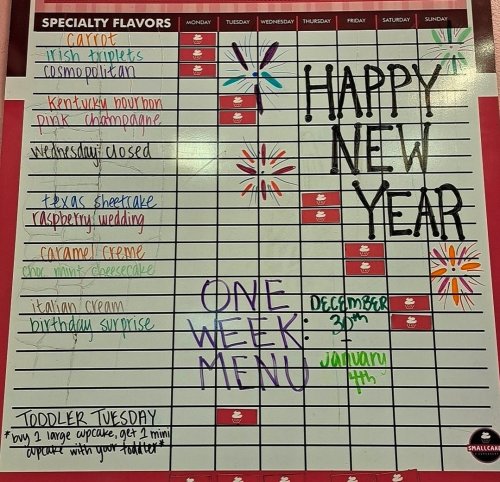 SPECIALTY FLAVORS MONDAY TUESDAY WEDNESDAY THURSDAY FRIDAY SATURDAY SUNDAY
carrot
irish triplets
cosmopolitan
HAPPY
kentucky bourbon
pink champagne
NEW
wednesday closed
YEAR
texas sheetcake
raspberry wedding
caramel creme
choc mint cheesecake
ONE
WEEK:
MENU
DECEMBER
30th
-
january
4th
italian cream
birthday surprise
TODDLER TUESDAY
*buy 1 large cupcake, get 1 mini
cupcake with your toddler*
SMALLCAKES